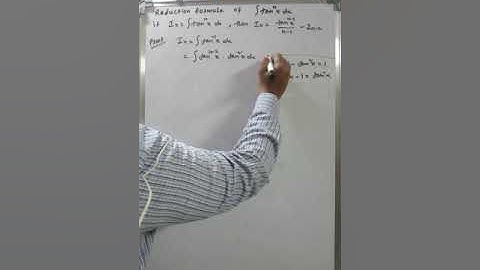 Reduction formula of ∫tanⁿx dx
if Iₙ = ∫tanⁿx dx, then Iₙ = tanⁿ⁻¹x/n-1 - Iₙ₋₂
Proof: Iₙ = ∫tanⁿx dx
= ∫tanⁿ⁻²x · tan²x dx
- tan²x = 1
- 1 = tan²x